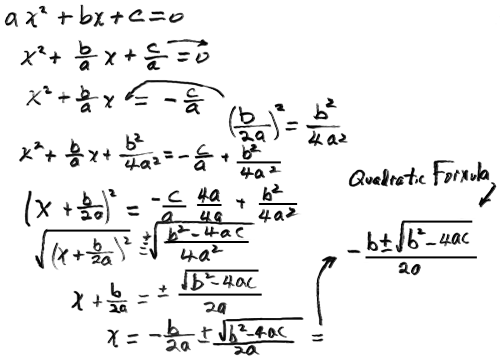 ax² + bx + c = 0
x² + b/a x + c/a = 0
x² + b/a x = - c/a
(b/2a)² = b²/4a²
x² + b/a x + b²/4a² = - c/a + b²/4a²
(x + b/2a)² = -c/a 4a/4a + b²/4a²
√(x + b/2a)² = ±√b² - 4ac/4a²
x + b/2a = ± √b² - 4ac/2a
x = - b/2a ± √b² - 4ac/2a =
Quadratic Formula
- b ± √b² - 4ac/2a